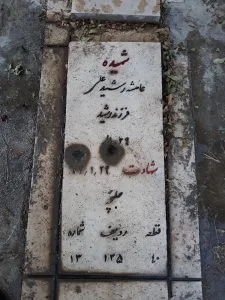 شهیده
عایشه رشید علی
فرزند رشید
۲۹
شهادت ۱.۲۹
حلبچه
قطعه ردیف شماره
۴۰ ۱۳۵ ۱۳